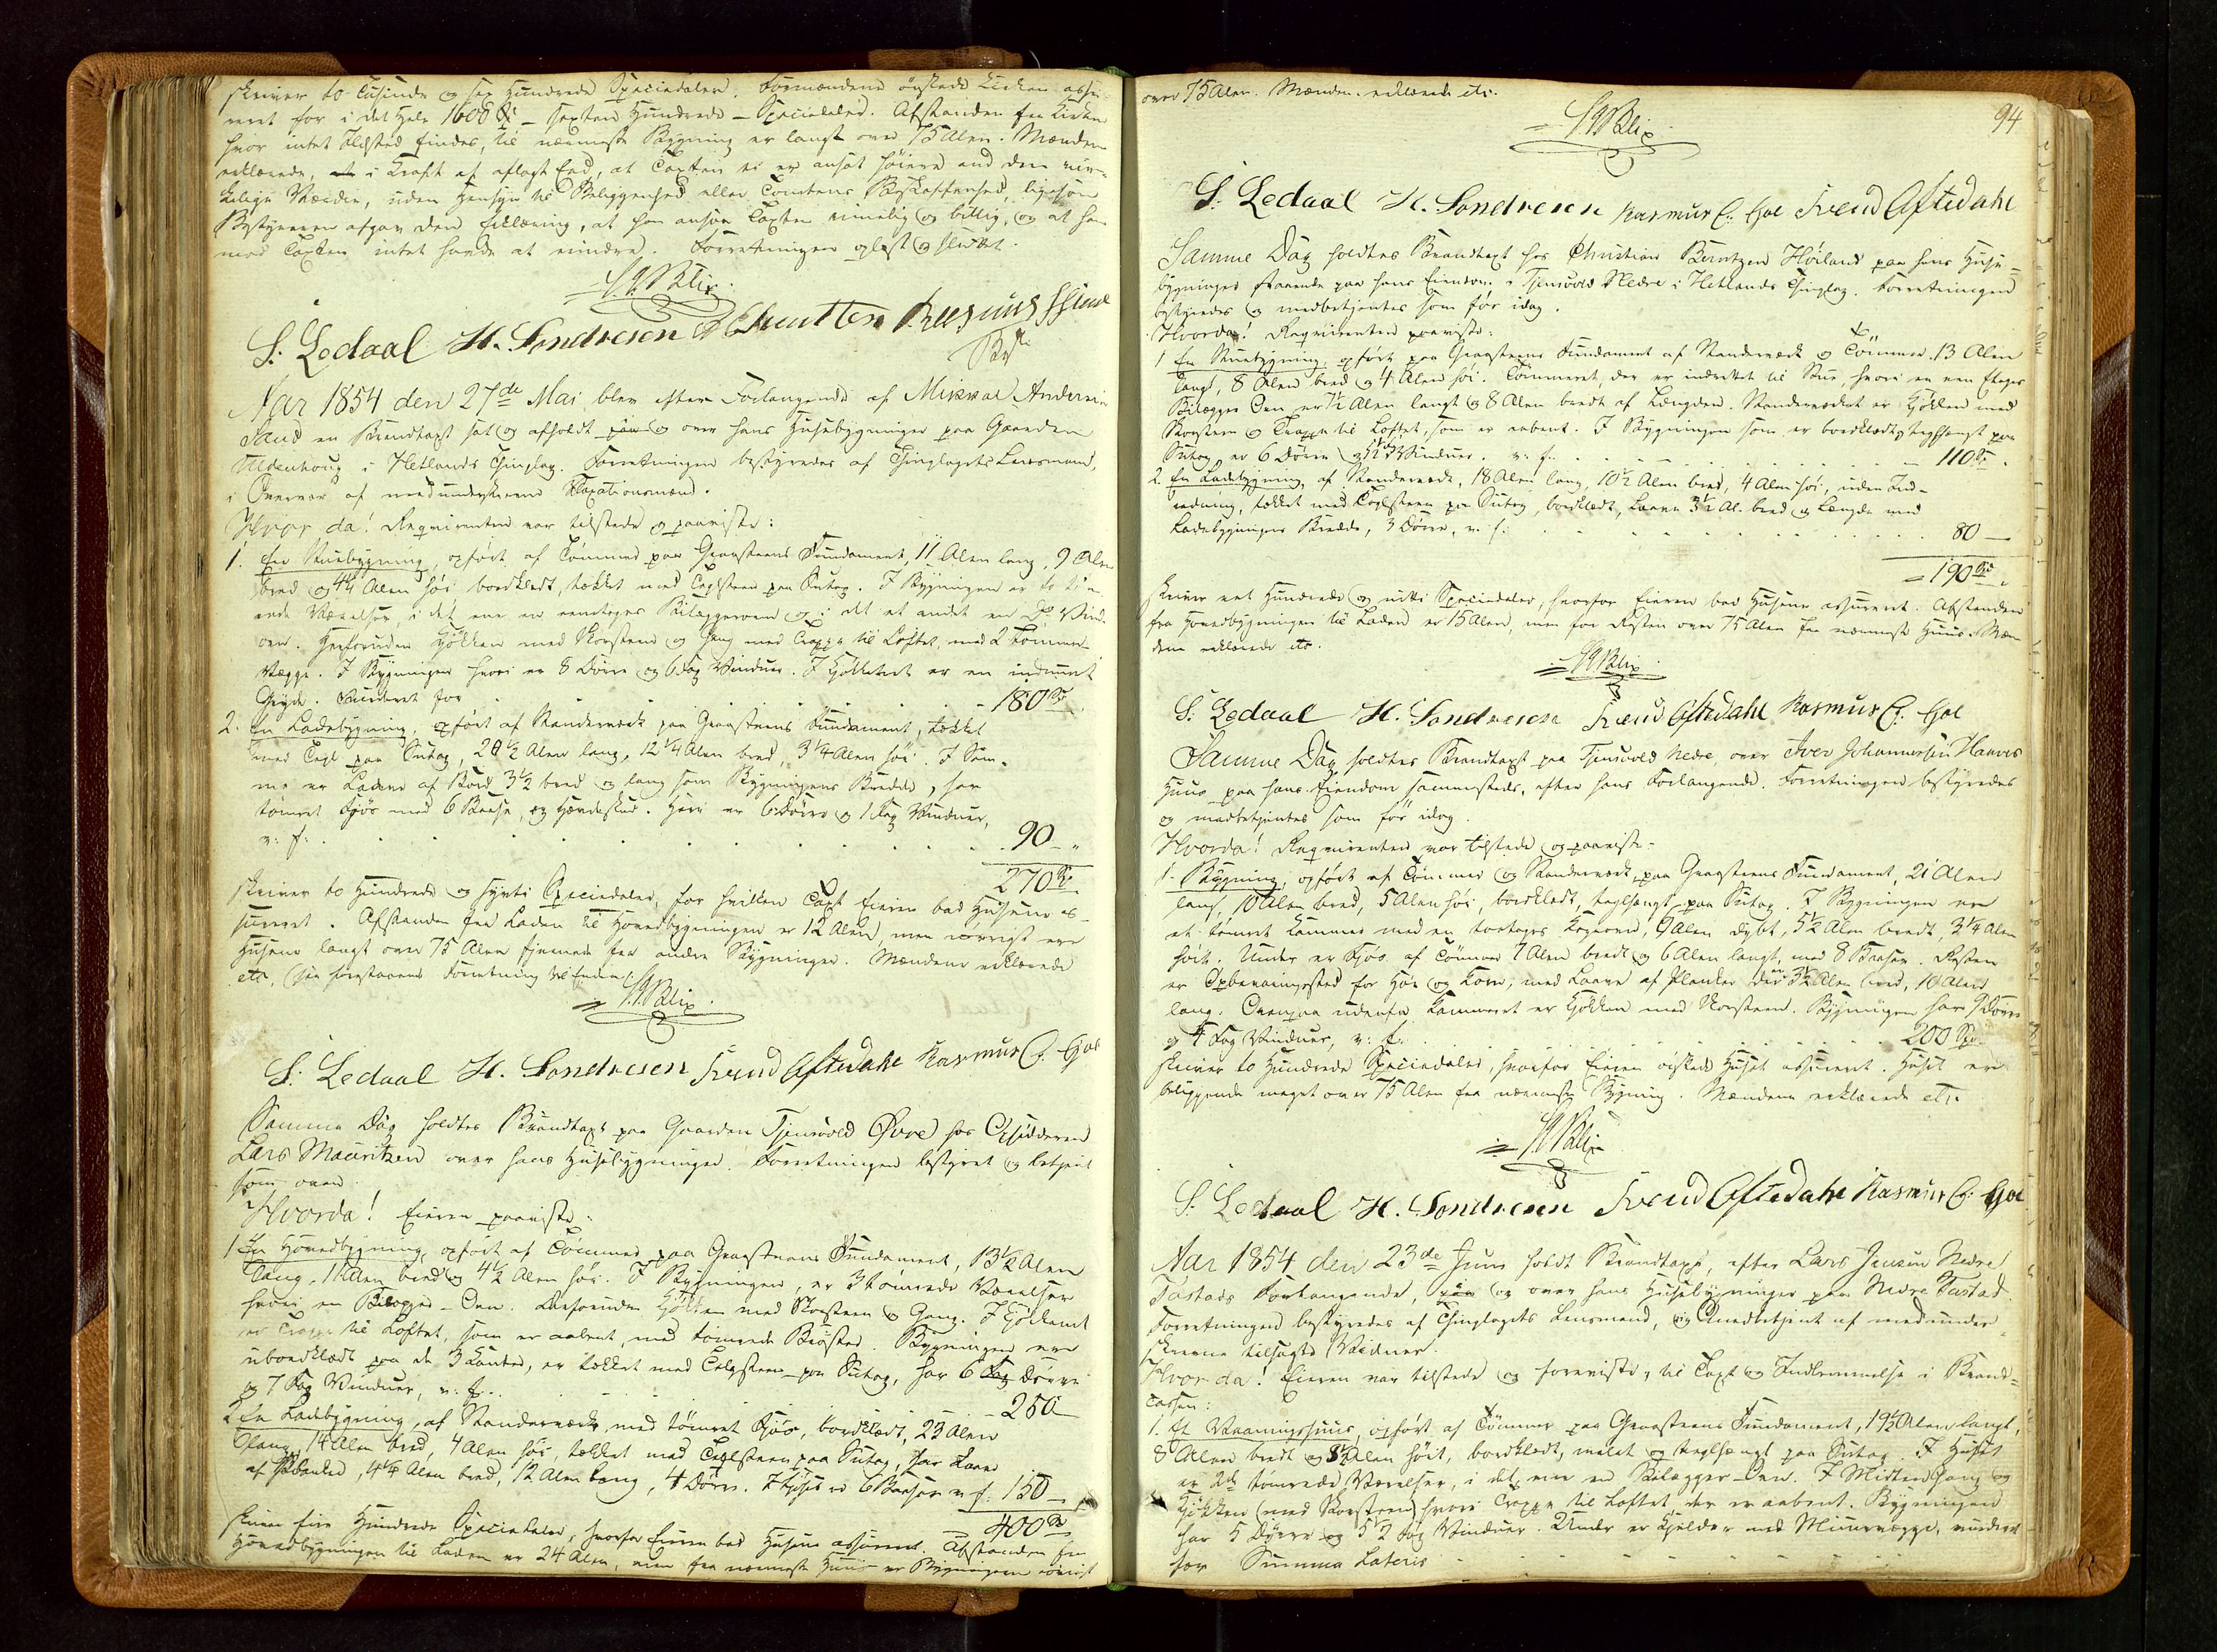 skriver to Tusinde og sex Hundrede Speciedaler. Formændene ønskede Kirken assu-
reret for i det Hele 1600 Spd – sexten Hundrede – Speciedaler. Afstanden fra Kirken
hvor intet Ildsted findes, til nærmeste Bygning er langt over 75 Alen. Mændene
erklærede, i Kraft af aflagt Eed, at Taxten ei er ansat høiere end den vir-
kelige Værdie, uden Hensyn til Beliggenhed eller Tomtens Beskaffenhed, ligesom
Bestyreren afgav den Erklæring, at han ansaa Taxten rimelig og billig, og at han
mod Taxten intet havde at erindre. Forretningen oplæst og sluttet.
Blix
S. Ledaal H. Sondresen Rasmus
Aar 1854 den 27de Mai blev efter Forlangende af Mikkal Andersen
Sand en Brandtaxt sat og afholdt paa og over hans Huusebygninger paa Gaarden
Uldenhoug i Hetlands Thinglag. Forretningen bestyredes af Thinglagets Lensmand,
i Overvær af medunderskrevne Taxationsmænd.
Hvor da! Reqvirenten var tilstede og paaviste:
1. En Stuebygning, opført af Tømmer paa Graasteens Fundament, 11 Alen lang, 9 Alen
bred og 4¼ Alen høi bordklædt, tækket med Taglsteen paa Sutag. I Bygningen er to tøm-
rede Værelser, i det ene en eenetages Bilæggerovn og i det andet en Vind-
ovn. Herforuden Kjøkken med Skorsteen og Gang med Trappe til Loftet, med 2 Tømmer
Vægge. I Bygningen hvori er 8 Dörre og 6 Fag Vinduer. I Kjøkkenet er en indmuret
Gryde. Vurderet for 180 Spd.
2. En Ladebygning, opført af Standerværk paa Graasteens Fundament, tækket
med Tagl paa Sutag, 20½ Alen lang, 12¼ Alen bred, 3¼ Alen høi. I Sam-
me er Laave af Bord 3½ bred og lang som Bygningens Bredde, har
tømret Fjös med 6 Baase, og Hørskeskud. Heri er 6 Dörre og 1 Fag Vinduer,
v: f: 90 – „
270 Spd.
skriver to Hundrede og sytti Speciedaler, for hvilken Taxt Eieren bad Husene as-
sureret. Afstanden fra Laden til Hovedbygningen er 12 Alen, men iøvrigt ere
Husene langt over 75 Alen fjernede fra andre Bygninger. Mændene erklærede
etc, (see foranstaaende Forretning til Enden).
Blix
S. Ledaal H. Sondresen Svend Aftedahl Rasmus C. Gjoe
Samme Dag holdtes Brandtaxt paa Gaarden Tjensvold Øvre hos
Lars Mauritzen over hans Huusebygninger. Forretningen bestyret og betjent
som oven.
Hvorda! Eieren paaviste:
1 En Hovedbygning, opført af Tømmer paa Graasteens Fundament, 13½ Alen
lang, 11 Alen bred og 4½ Alen høi. I Bygningen, er 3 tømrede Værelser
hvori en Bilægger-Ovn. Desforuden Kjøkken med Skorsteen og Gang. I Kjøkkenet
er Trappe til Loftet, som er aabent, med tømrede Brøster. Bygningen er
ubordklædt paa de 3 Kanter, er tækket med Taglsteen paa Sutag, har 6 Dörre
og 7 Fag Vinduer, v: f: 250
2 En Ladebygning, af Standerværk, med tømret Fjös, bordklædt, 23 Alen
lang, 14 Alen bred, 4 Alen høi, tækket med Taglsteen paa Sutag, har Laave
af Planker, 4¼ Alen bred, 12 Alen lang, 4 Dörre. I Fjöset er 6 Baaser v: f: 150 –
400 Spd
skriver fire Hundrede Speciedaler, hvorfor Eieren bad Husene assureret. Afstanden fra
Hovedbygningen til Laden er 24 Alen, men fra nærmeste Huus er Bygningerne iøvrigt
over 75 Alen. Mændene erklærede etc.
94
Blix
S. Ledaal H. Sondresen Rasmus C. Gjoe Svend Aftedahl
Samme Dag holdtes Brandtaxt hos Christian Berntzen Høiland paa hans Huse-
bygninger staaende paa hans Eiendom i Tjensvold Nedre i Hetlands Thinglag. Forretningen
bestyredes og medbetjentes som før idag.
Hvorda! Reqvirenten paaviste:
1 En Stuebygning opført paa Graasteens Fundament af Standerværk og Tömmer. 13 Alen
langt, 8 Alen bred og 4 Alen høi. Tömmeret, der er indrettet til Stue, hvori en een Etages
Bilægger Ovn er 7½ Alen langt og 8 Alen bredt af Længden. Standerværket er Kjökken med
Skorsteen og Trappe til Loftet, som er aabent. I Bygningen som er bordklædt, teglhængt paa
Sutag er 6 Dörre og 5½ Fag Vinduer. v: f: 110 Spd.
2. En Ladebygning, af Standerværk, 18 Alen lang, 10½ Alen bred, 4 Alen høi, uden Ind-
redning, tækket med Taglsteen paa Sutag, bordklædt, Laave 3½ Al. bred og Længde med
Ladebygningens Bredde, 3 Dörre, v: f: 80 –
= 190 Spd.
skriver eet Hundrede og nitti Speciedaler, hvorfor Eieren bad Husene assureret. Afstanden
fra Hovedbygningen til Laden er 15 Alen, men for Resten over 75 Alen fra nærmeste Huus. Mæn-
dene erklærede etc.
Blix
S. Ledaal H. Sondresen Svend Aftedahl Rasmus C. Gjoe
Samme Dag holdtes Brandtaxt paa Tjensvold Nedre, over Iver Johannessen Haaves
Huus paa hans Eiendom sammesteds, efter hans Forlangende. Forretningen bestyredes
og medbetjentes som før idag.
Hvorda! Reqvirenten var tilstede og paaviste:
1. Bygning, opført af Tömmer og Standerværk, paa Graasteens Fundament, 21 Alen
lang, 10 Alen bred, 5 Alen høi, bordklædt, teglhængt paa Sutag. I Bygningen er
et tömret Kammer med en toetages Kogeovn, 9 Alen dybt, 5½ Alen bredt, 3¼ Alen
høit. Under er Fjös af Tömmer 7 Alen bredt og 6 Alen langt, med 8 Baaser. Resten
er Opbevaringssted for Hø og Korn, med Laave af Planker der er 3½ Alen bred, 10 Alen
lang. Ovenpaa udenfor Kammeret er Kjökken med Skorsteen. Bygningen har 9 Dörre
og 4 Fag Vinduer, v: f: 200 Spd.
skriver to Hundrede Speciedaler, hvorfor Eieren ønskede Huset assureret. Huset er
beliggende meget over 75 Alen fra nærmeste Bygning. Mændene erklærede etc.
Blix
S. Ledaal H. Sondresen Svend Aftedahl Rasmus C. Gjoe
Aar 1854 den 23de Juni holdt Brandtaxt, efter Lars Jensen Nedre
Tastads Forlangende, paa og over hans Huusebygninger paa Nedre Tastad.
Forretningen bestyredes af Thinglagets Lensmand, og medbetjent af medunder-
skrevne tilsagte Vidner.
Hvor da! Eieren var tilstede og foreviste, til Taxt og Indlemmelse i Brand-
cassen:
1. Et Vaaningshuus, opført af Tömmer paa Graasteens Fundament, 19½ Alen langt,
8 Alen bredt og Alen høit, bordklædt, malet og teglhængt paa Sutag. I Huset
er 2de tømrede Værelser, i det ene en Bilægger-Ovn. I Midten Gang og
Kjökken (med Skorsteen) hvori Trappe til Loftet, der er aabent. Bygningen
har 5 Dörre og 5½ Fag Vinduer. Under er Kjelder med Muurvægge, vurderet
for Summa Lateris